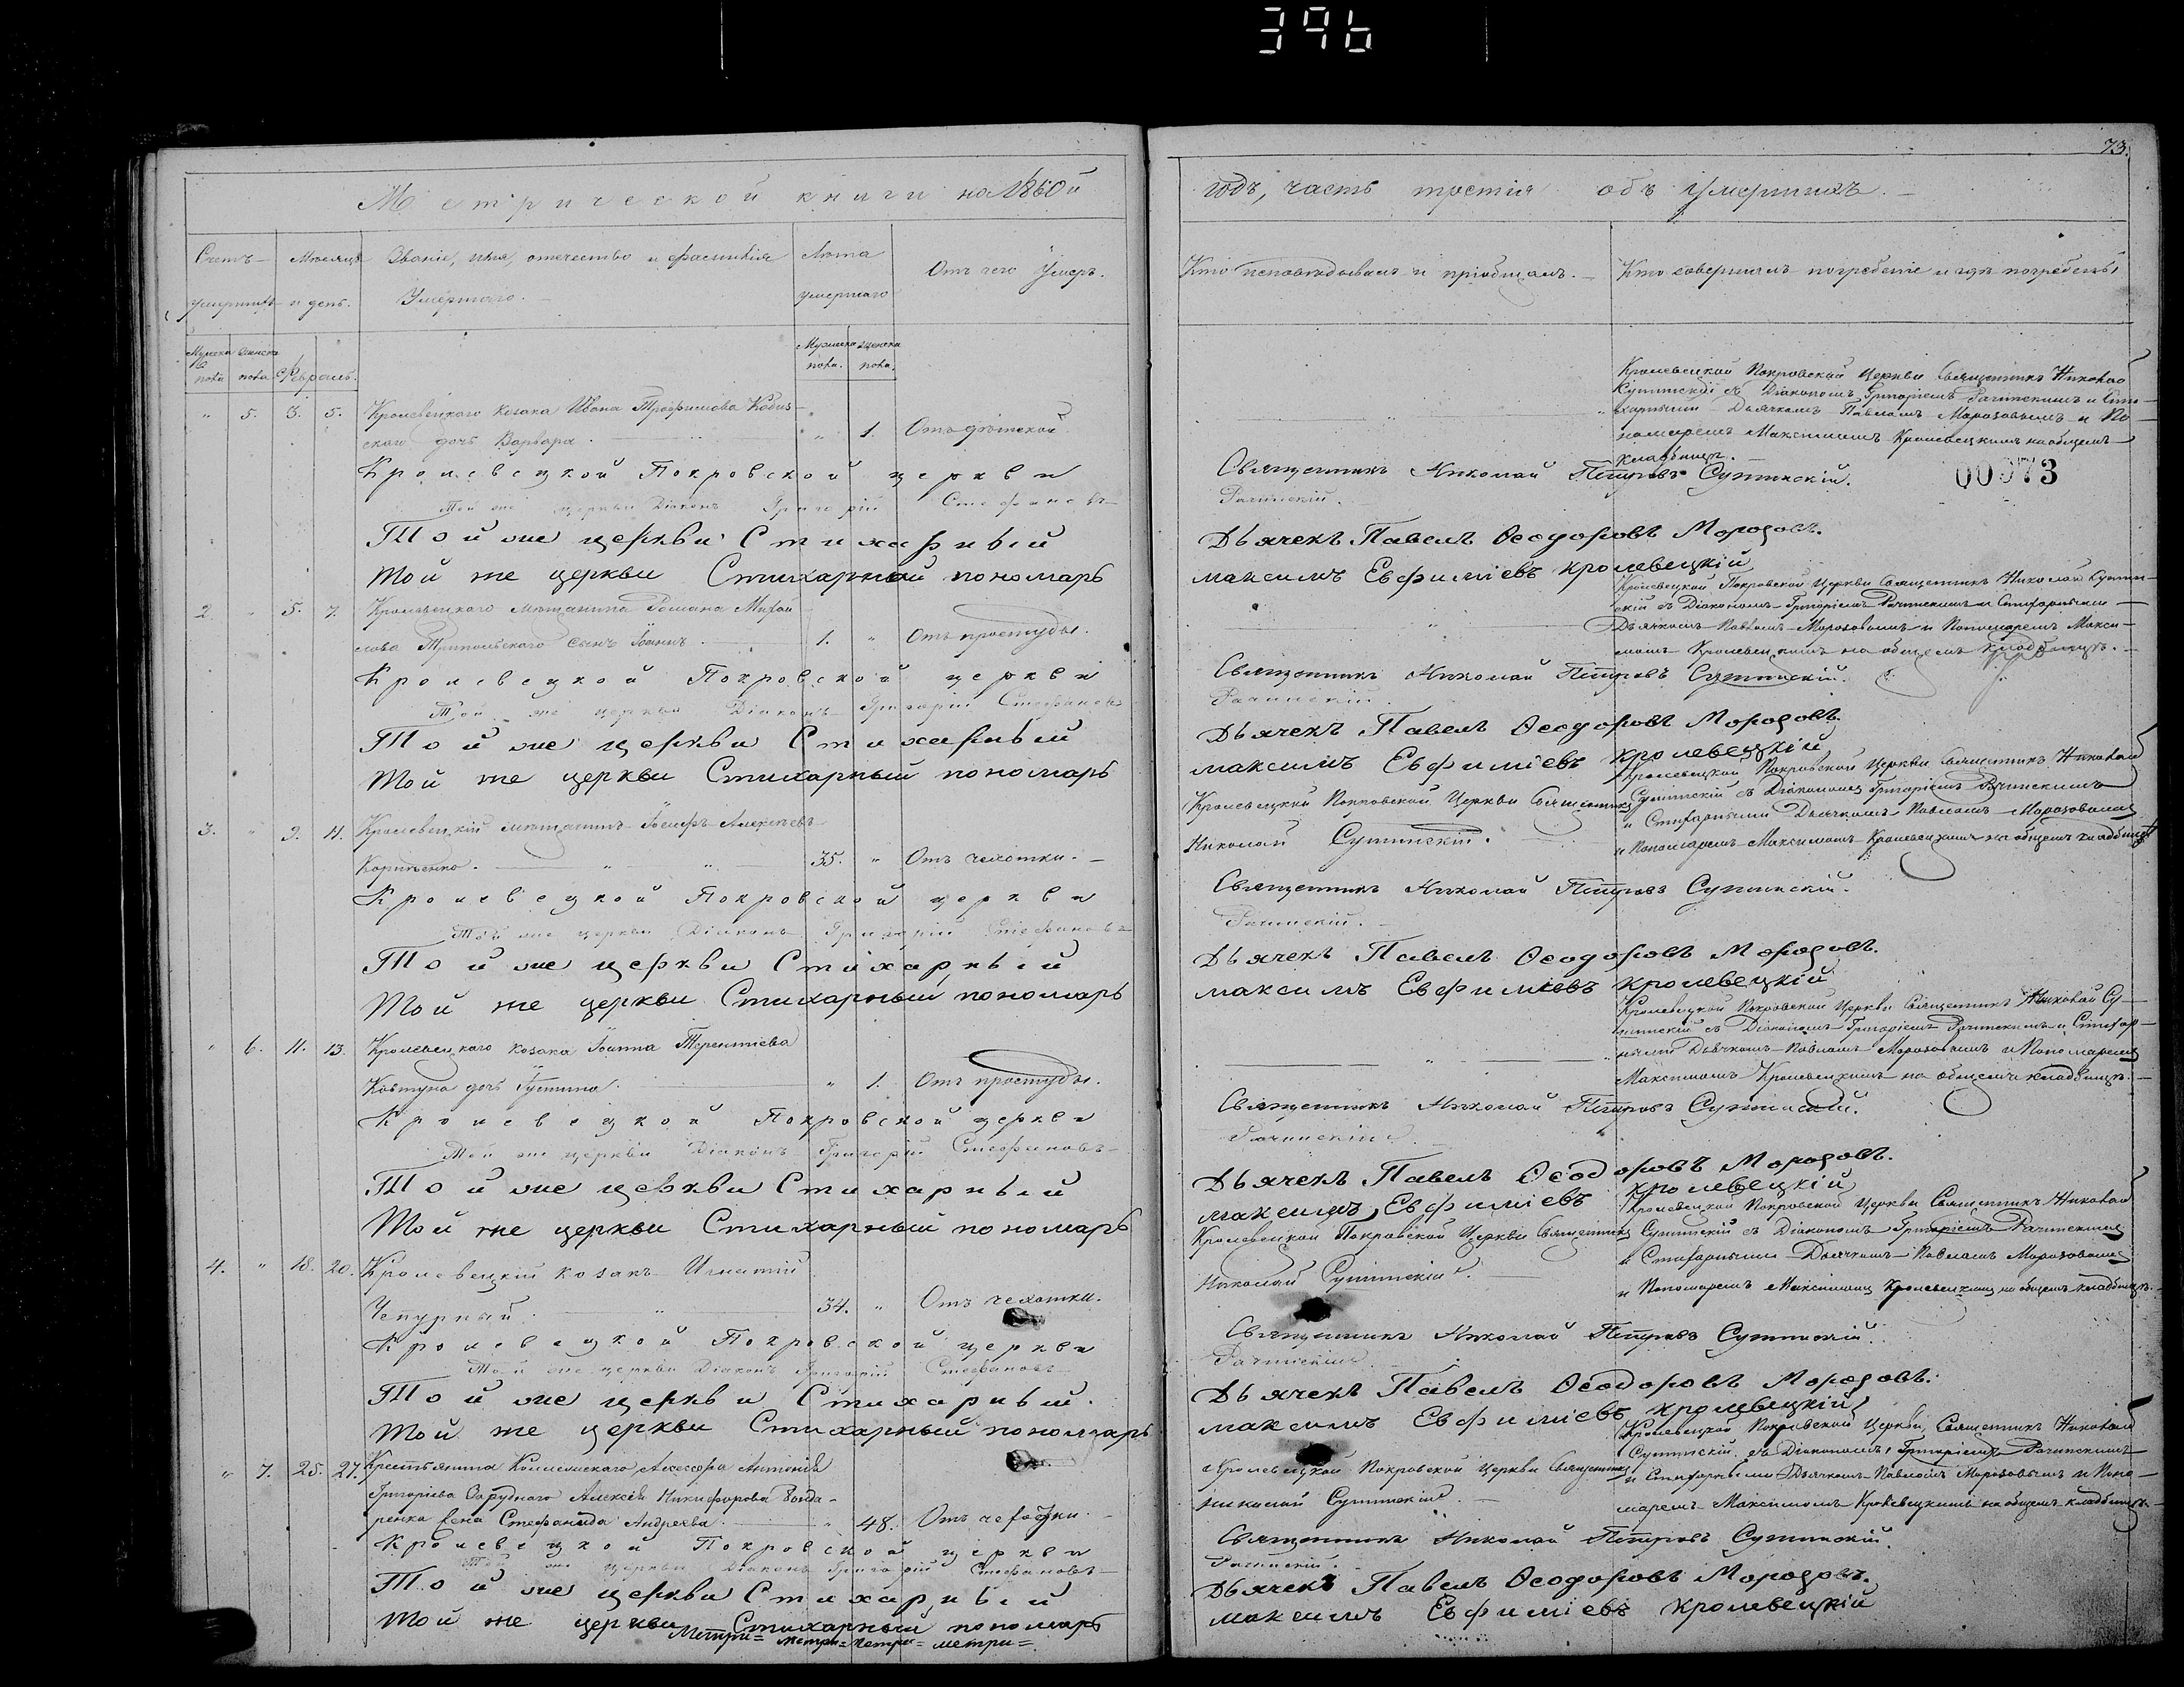 396
73.
Метрической книги на 1860й
годъ, часть третія объ умершихъ.
Счетъ умершихъ
Мѣсяцъ и день.
Званіе, имя, отечество и фамилія Умершаго.
Лѣта умершаго
Отъ чего умеръ.
Кто исповѣдывалъ и пріобщалъ.
Кто совершалъ погребеніе и гдѣ погребены
Мужеска пола
женска пола
Февраль.
Мужеска пола.
женска пола.
" 5. 3. 5. Кролевецкаго козака Ивана Трофимова
скаго дочь Варвара. " 1. Отъ дѣтской
Кролевецкой Покровской Церкви Священникъ Николай
Сутинскій съ Діакономъ Григоріемъ Рачинскимъ и Сти-
харными Дьячкомъ Павломъ Морозовымъ и По-
номаремъ Максимомъ Кролевецкимъ на общемъ
кладбищѣ.
Кролевецкой Покровской церкви Священникъ Николай Петровъ Сутинскій.
00973
Той же церкви Діаконъ Григорій Стефановъ
Рачинскій.
Той же церкви Стихарный Дьячекъ Павелъ Ѳеодоровъ Морозовъ.
Той же церкви Стихарный пономарь максимъ Евфиміевъ кролевецкій
2 " 5. 7. Кролевецкаго мѣщанина Романа Михай
лова Трипольскаго сынъ Іоаннъ. 1. " Отъ простуды.
Кролевецкой Покровской Церкви Священникъ Николай Сутин-
скій съ Діакономъ Григоріемъ Рачинскимъ и Стихарными
Дьячкомъ Павломъ Морозовымъ и Пономаремъ Макси-
момъ Кролевецкимъ на общемъ кладбищѣ.
Кролевецкой Покровской церкви Священникъ Николай Петровъ Сутинскій.
Той же церкви Діаконъ Григорій Стефановъ
Рачинскій.
Той же церкви Стихарный Дьячекъ Павелъ Ѳеодоровъ Морозовъ.
Той же церкви Стихарный пономарь максимъ Евфиміевъ кролевецкій
3. " 9. 11. Кролевецкій мѣщанинъ Іосифъ Алексѣевъ
Корніенко. 35. " Отъ чехотки.
Кролевецкой Покровской Церкви Священникъ
Николай Сутинскій.
Кролевецкой Покровской Церкви Священникъ Николай
Сутинскій съ Діакономъ Григоріемъ Рачинскимъ
и Стихарными Дьячкомъ Павломъ Морозовымъ
и Пономаремъ Максимомъ Кролевецкимъ на общемъ кладбищѣ
Кролевецкой Покровской церкви Священникъ Николай Петровъ Сутинскій.
Той же церкви Діаконъ Григорій Стефановъ
Рачинскій.
Той же церкви Стихарный Дьячекъ Павелъ Ѳеодоровъ Морозовъ.
Той же церкви Стихарный пономарь максимъ Евфиміевъ кролевецкій
" 6. 11. 13. Кролевецкаго козака Іоанна Терентіева
Ковтуна дочь Іустина. " 1. Отъ простуды.
Кролевецкой Покровской Церкви Священникъ Николай Су-
тинскій съ Діакономъ Григоріемъ Рачинскимъ и Стихар-
ными Дьячкомъ Павломъ Морозовымъ и Пономаремъ
Максимомъ Кролевецкимъ на общемъ кладбищѣ.
Кролевецкой Покровской церкви Священникъ Николай Петровъ Сутинскій.
Той же церкви Діаконъ Григорій Стефановъ
Рачинскій.
Той же церкви Стихарный Дьячекъ Павелъ Ѳеодоровъ Морозовъ.
Той же церкви Стихарный пономарь максимъ Евфиміевъ кролевецкій
4. " 18. 20. Кролевецкій козакъ Игнатій
Чепурный. 34. " Отъ чехотки.
Кролевецкой Покровской Церкви Священникъ
Николай Сутинскій.
Кролевецкой Покровской Церкви Священникъ Николай
Сутинскій съ Діакономъ Григоріемъ Рачинскимъ
и Стихарными Дьячкомъ Павломъ Морозовымъ
и Пономаремъ Максимомъ Кролевецкимъ на общемъ кладбищѣ.
Кролевецкой Покровской церкви Священникъ Николай Петровъ Сутинскій.
Той же церкви Діаконъ Григорій Стефановъ
Рачинскій.
Той же церкви Стихарный. Дьячекъ Павелъ Ѳеодоровъ Морозовъ.
Той же церкви Стихарный пономарь максимъ Евфиміевъ кролевецкій
" 7. 25. 27. Крестьянина Коллежскаго Ассесора Антонія
Григоріева Заруднаго Алексія Никифорова Бонда-
ренка жена Стефанида Андреева. " 48. Отъ чехотки.
Кролевецкой Покровской Церкви Священникъ
Николай Сутинскій.
Кролевецкой Покровской Церкви Священникъ Николай
Сутинскій съ Діакономъ Григоріемъ Рачинскимъ
и Стихарными Дьячкомъ Павломъ Морозовымъ и Поно-
маремъ Максимомъ Кролевецкимъ на общемъ кладбищѣ.
Кролевецкой Покровской церкви Священникъ Николай Петровъ Сутинскій.
Той же церкви Діаконъ Григорій Стефановъ
Рачинскій.
Той же церкви Стихарный Дьячекъ Павелъ Ѳеодоровъ Морозовъ.
Той же церкви Стихарный пономарь максимъ Евфиміевъ кролевецкій
Метри= метри= метри= метри=